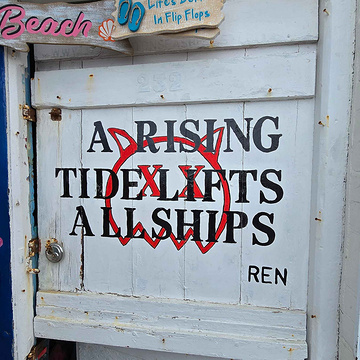 Beach
Life's Better
In Flip Flops
A RISING
TIDE LIFTS
ALL SHIPS
REN